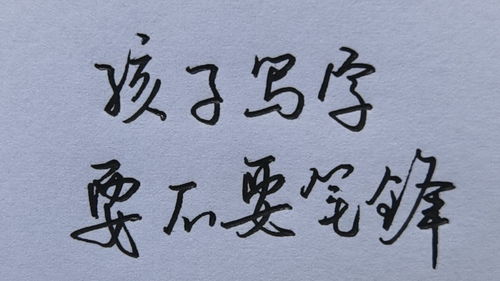 孩子写字
要不要笔锋